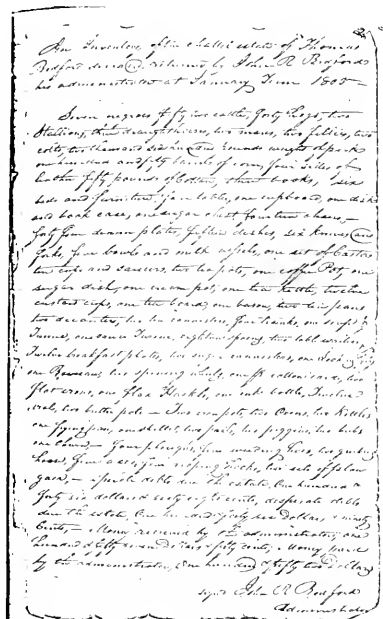 An Inventory of the Chattel estate of Thomas
Bedford decd returned by John R Bedford
his administrator at January Term 1805
Seven negroes fifty two cattle, forty Hogs, two
Stallions, three draught horses, two mares, two fillies, two
colts, two thousand six hundred pounds weight of pork
one hundred and fifty barrels of corn, four Sides of
leather fifty pounds of Cotton, three books, six
beds and furniture, four tables, one cupboard, one desk
and book case, one sugar chest fourteen chairs,
forty four plates, fifteen dishes, six knives and
forks, four bowls and milk vessels, one set of Castors
ten cups and saucers, two tea pots, one coffee Pot, one
sugar dish, one cream pot, one tea Kettle, twelve
custard cups, one tea board, one bason, two tin pans
two decanters, two tea cannisters, four trunks, one soup
one sauce eighteen spoons, two table
Twelve breakfast plates, two sugar cannisters, one
one Bureau, two spinning wheels, one pr cotton cards, two
flat irons, one flax Hackle, one ink bottle,
two butter pots Two two Ovens, two Kettles
one frying pan, one skillet, two pails, two piggins, two tubs
one churn, four ploughs, four weeding hoes, two grubing
hoes, four axes, four two sets of
gear, debts due the estate, One hundred &
forty six dollars & sixty eight cents, desperate debts
due the estate One hundred & forty six Dollars & ninety
Cents, Money received by the administrator, one
hundred & fifty seven dollars & fifty cents, Money paid
by the administrator, One hundred & fifty two Dollars
signed John R Bedford
Administrator